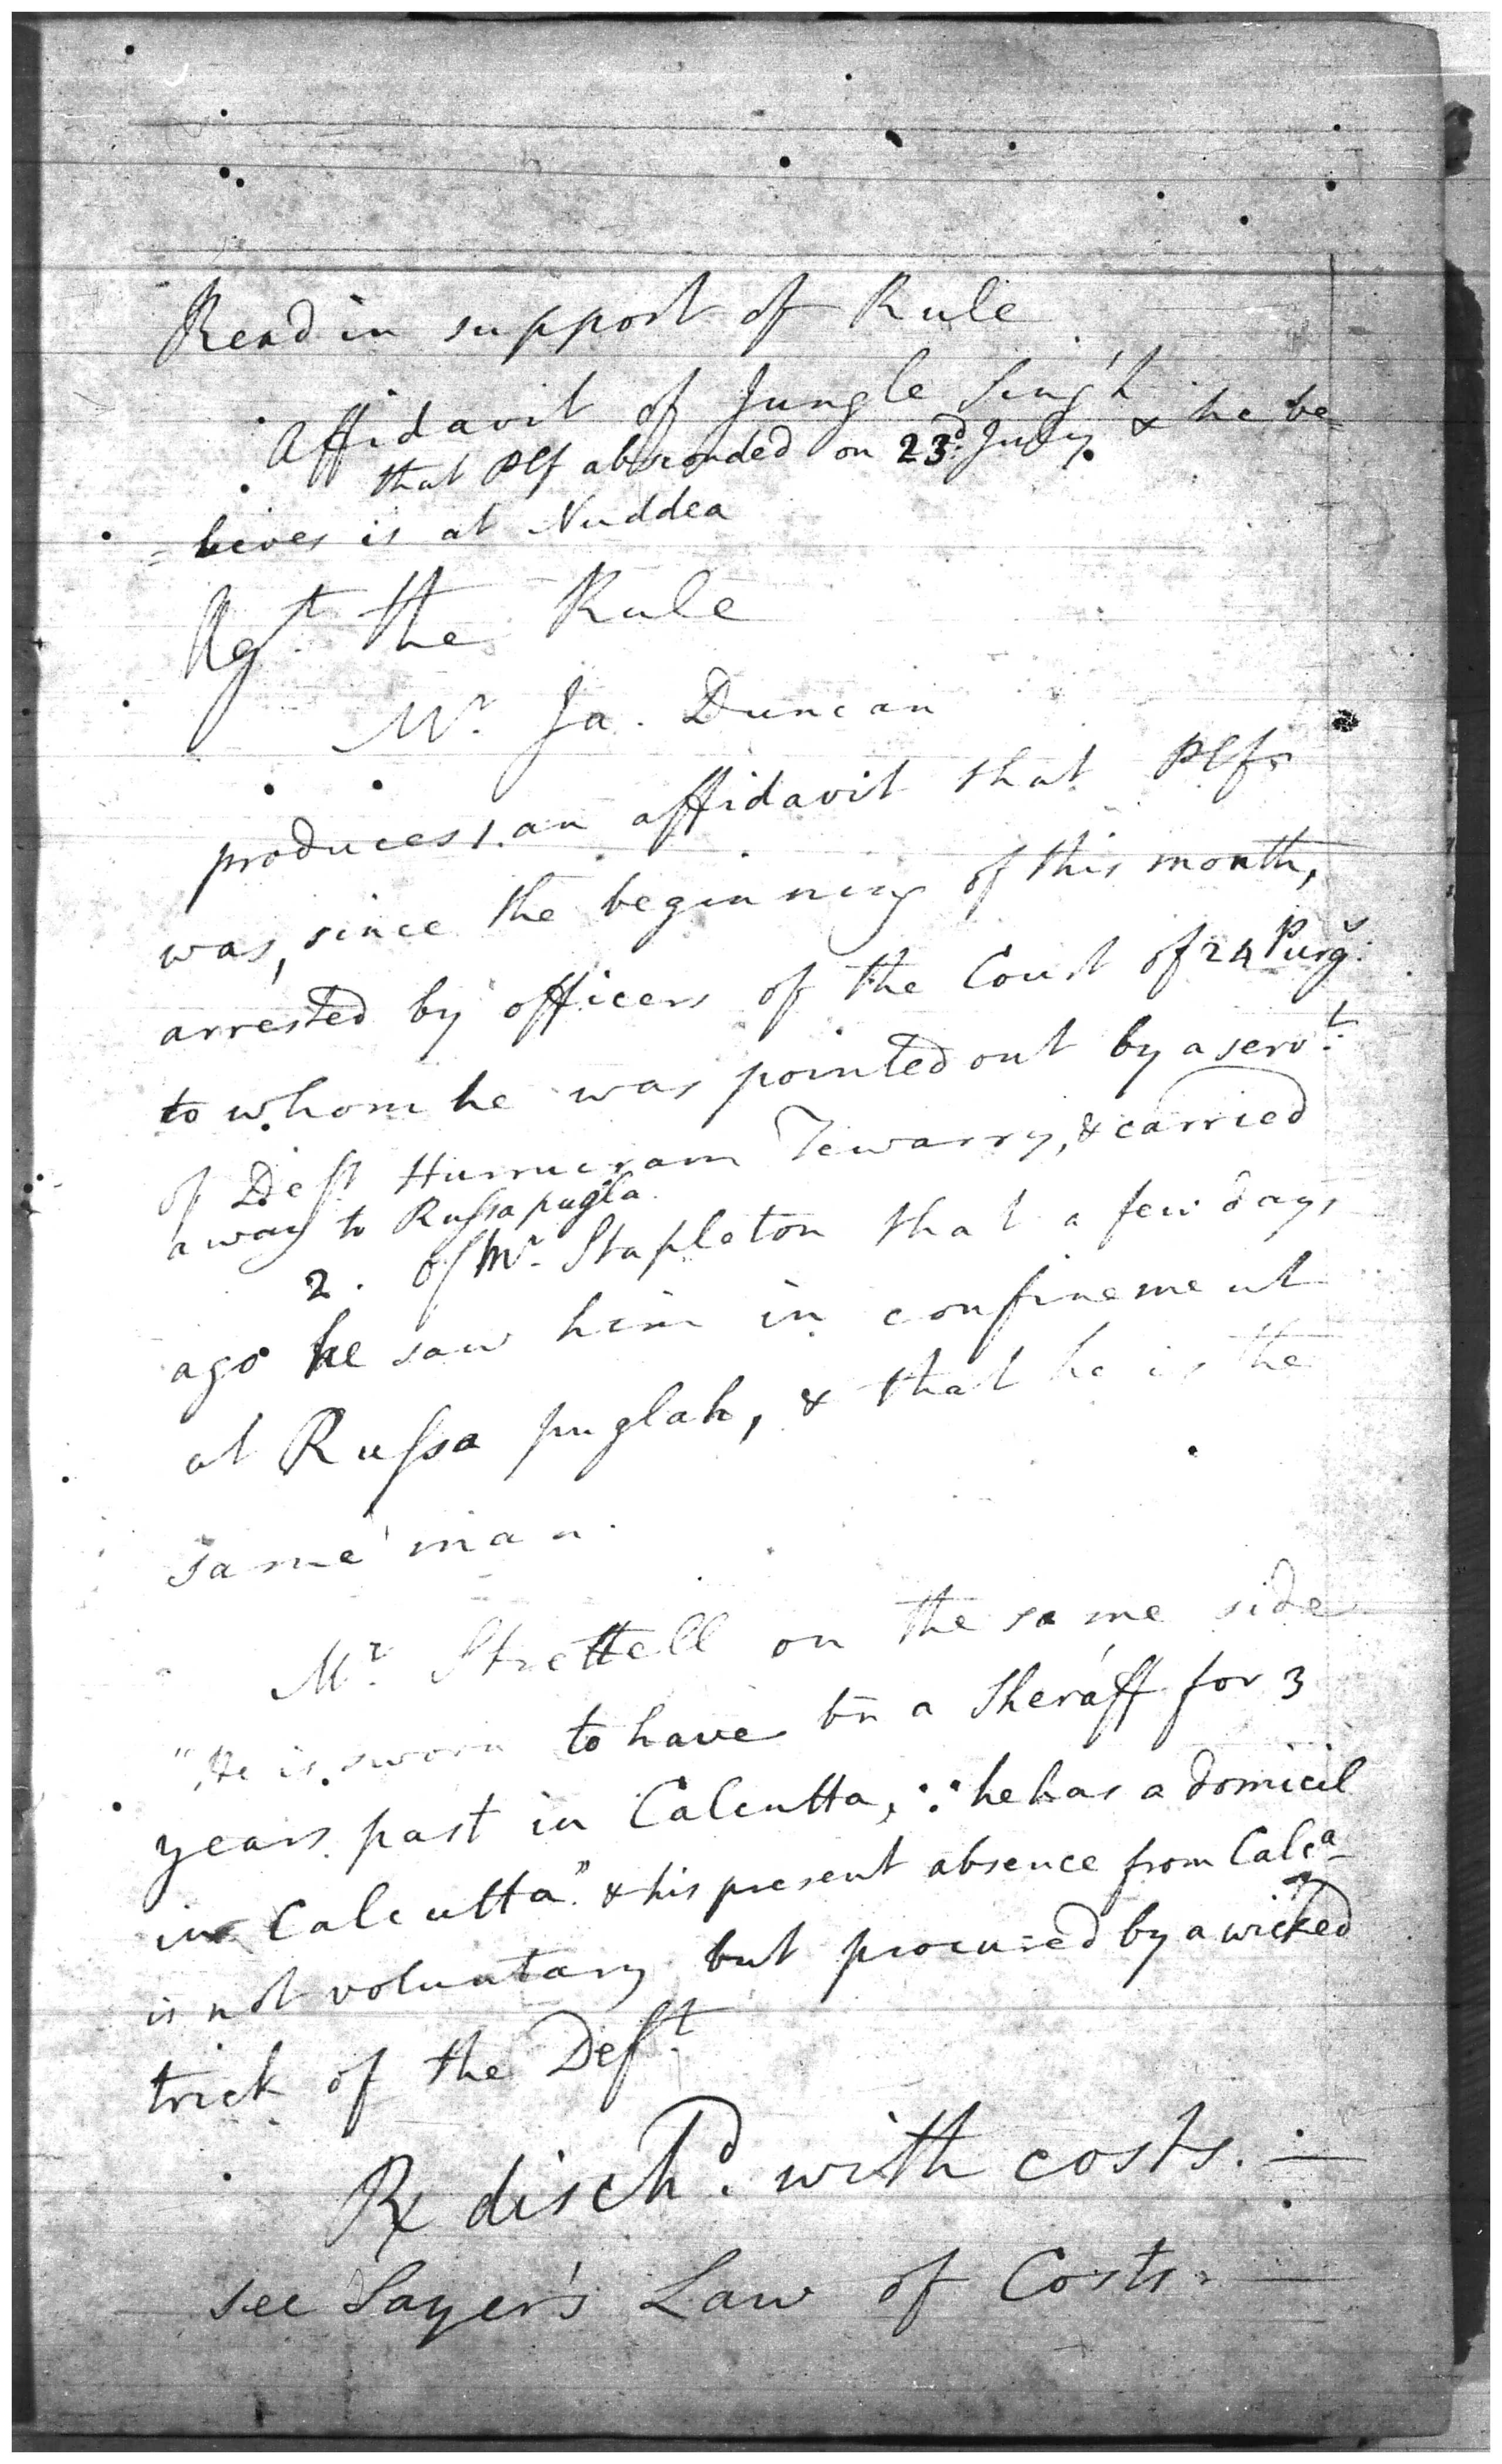 Read in support of Rule
Affidavit of Jungle Sing'h
that Plf absconded on 23d: July. & he be=
=lieves is at Nuddea
Agt the Rule
Mr. Ja. Duncan
produces 1. an affidavit that Plf
was, since the beginning of this month,
arrested by officers of the Court of 24 Purg:
to whom he was pointed out by a servt:
of Deft Hurrucram Tewarry, & carried
away to Russapugla.
2. of Mr. Stapleton that a few days
ago he saw him in confinement
at Russa puglah, & that he is the
same man.
Mr. Strettell on the same side
"He is sworn to have bn a Sheráff for 3
years past in Calcutta, ∴ he has a domicil
in Calcutta" & his present absence from Calca
is not voluntary but procured by a wicked
trick of the Deft.
R disch'd. with costs. —
see Sayer's Law of Costs. —